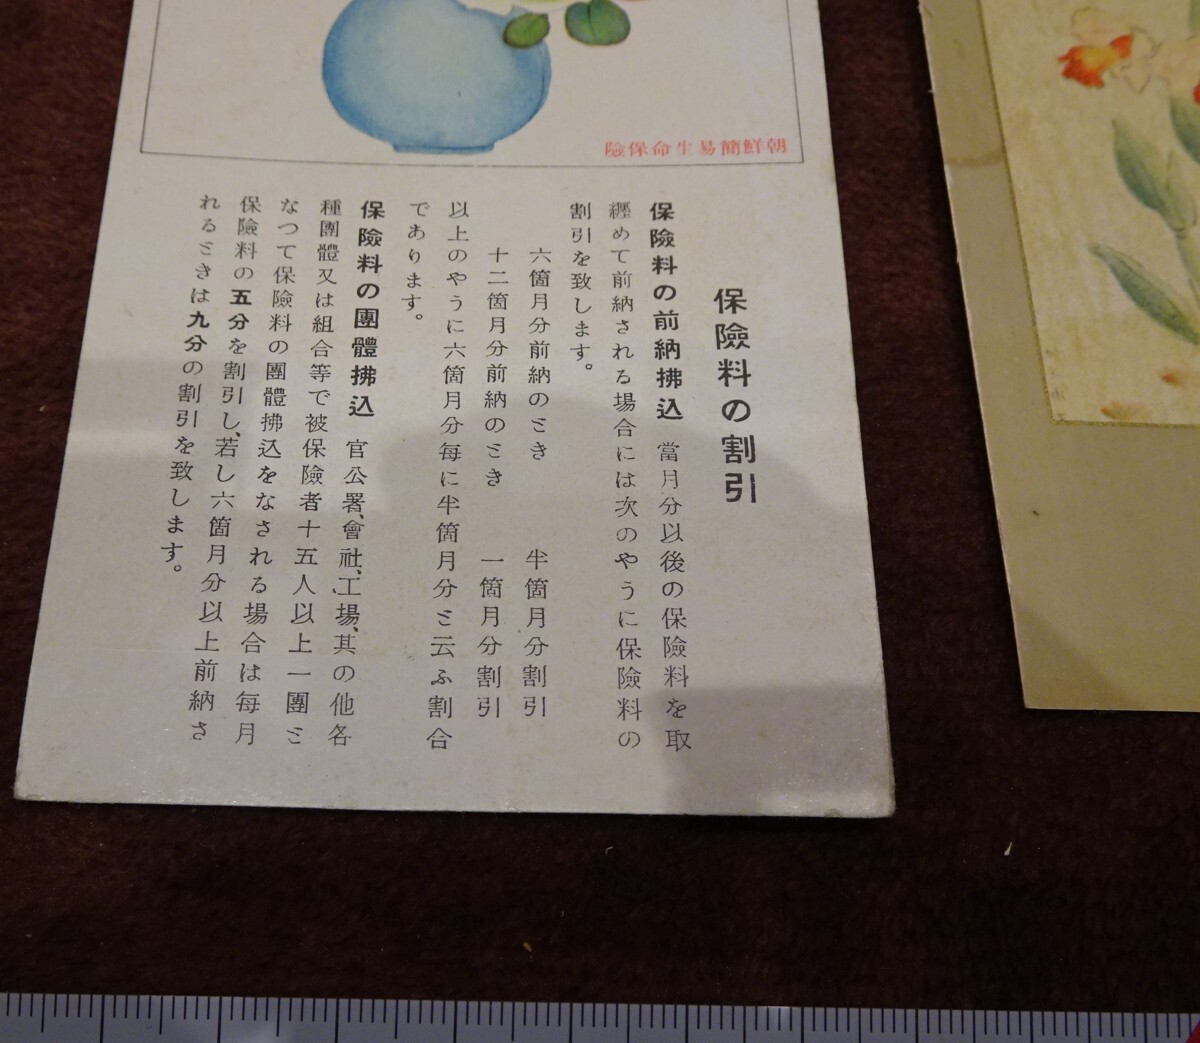 險保命生易簡鮮朝
保險料の割引
保險料の前納拂込 當月分以後の保險料を取
纒めて前納される場合には次のやうに保險料の
割引を致します。
六箇月分前納のとき 半箇月分割引
十二箇月分前納のとき 一箇月分割引
以上のやうに六箇月分每に半箇月分と云ふ割合
であります。
保險料の團體拂込 官公署、會社、工場、其の他各
種團體又は組合等で被保險者十五人以上一團と
なつて保險料の團體拂込をなされる場合は每月
保險料の五分を割引し、若し六箇月分以上前納さ
れるときは九分の割引を致します。